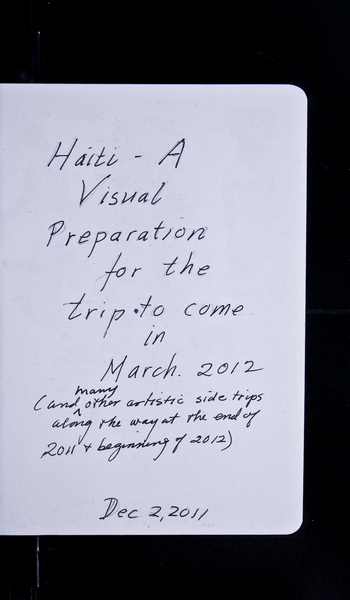 Haiti - A
Visual
Preparation
for the
trip to come
in
March. 2012
(and many other artistic side trips
along the way at the end of
2011 + beginning of 2012)
Dec 2, 2011